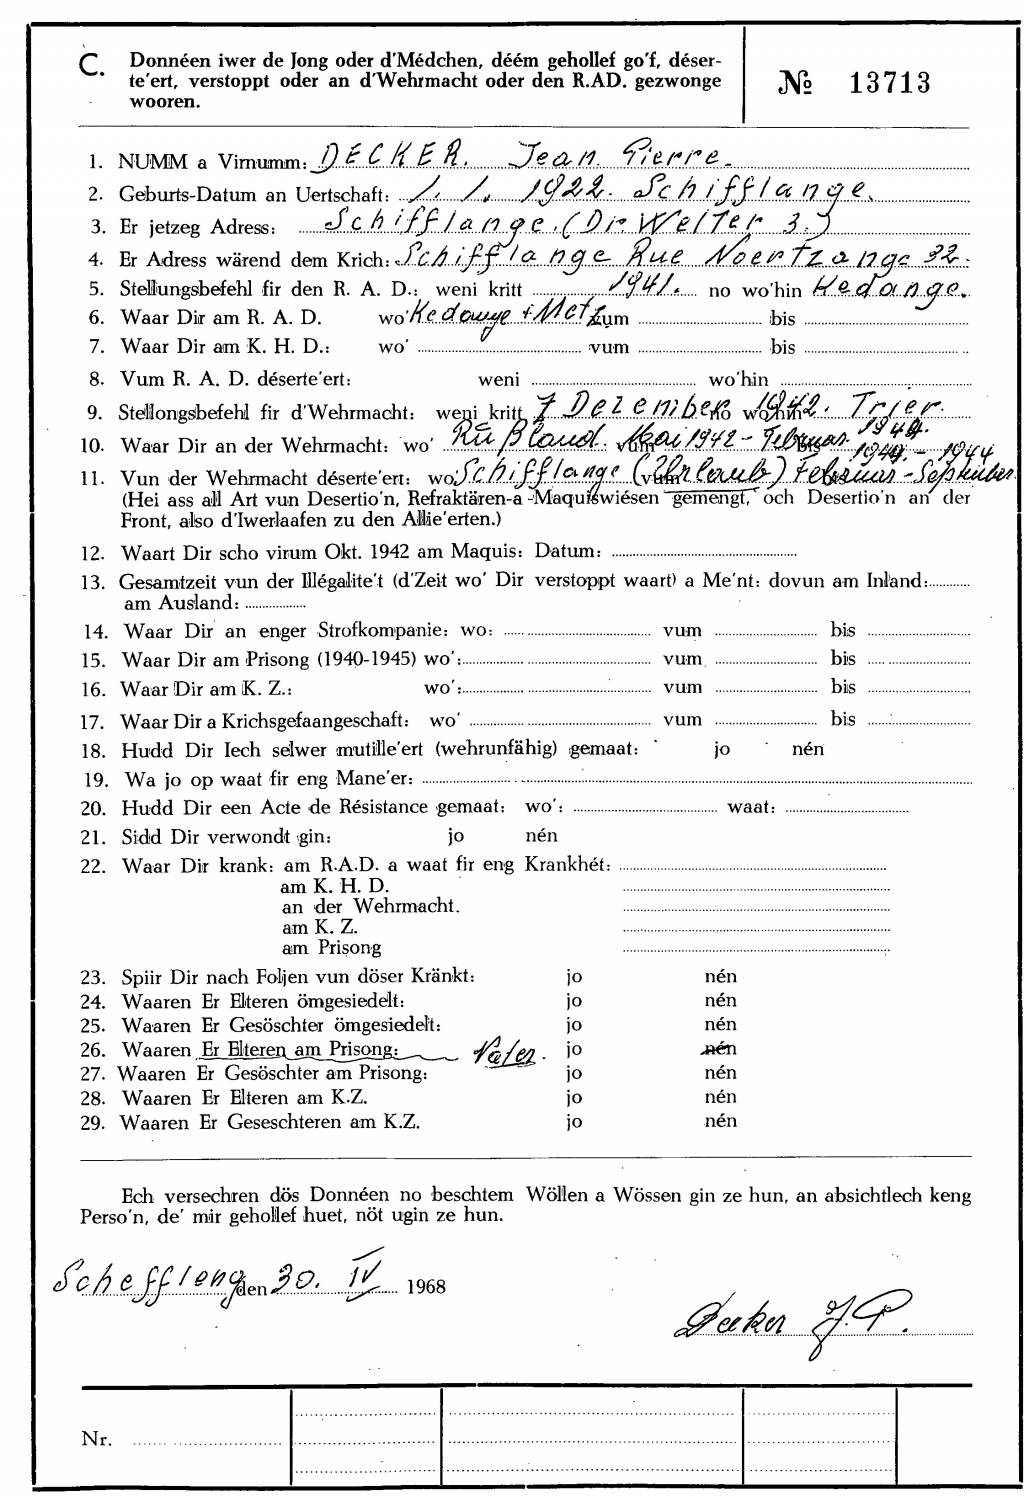 C. Donnéen iwer de Jong oder d'Médchen, déém gehollef go'f, déser-
te'ert, verstoppt oder an d'Wehrmacht oder den R.AD. gezwonge
wooren.
№ 13713
1. NUMM a Virnumm: DECKER. Jean Pierre.
2. Geburts-Datum an Uertschaft: 1. 1. 1922. Schifflange.
3. Er jetzeg Adress: Schifflange. (Dr Welter 3.)
4. Er Adress wärend dem Krich: Schifflange Rue Noertzange 32.
5. Stellungsbefehl fir den R. A. D.: weni kritt 1941. no wo'hin Kedange.
6. Waar Dir am R. A. D. wo' Kedange + Metz vum bis
7. Waar Dir am K. H. D.: wo' vum bis
8. Vum R. A. D. déserte'ert: weni wo'hin
9. Stellongsbefehl fir d'Wehrmacht: weni kritt 7 Dezember 1942. no wo'hin Trier.
10. Waar Dir an der Wehrmacht: wo' Rußland. vum Mai 1942 - bis Februar 1944.
11. Vun der Wehrmacht déserte'ert: wo: Schifflange (Uhrlaub) vum Februar - September 1944. - 1944
(Hei ass all Art vun Desertio'n, Refraktären-a -Maquiswiésen gemengt, och Desertio'n an der
Front, also d'Iwerlaafen zu den Allie'erten.)
12. Waart Dir scho virum Okt. 1942 am Maquis: Datum:
13. Gesamtzeit vun der Illégalite't (d'Zeit wo' Dir verstoppt waart) a Me'nt: dovun am Inland:
am Ausland:
14. Waar Dir an enger Strofkompanie: wo: vum bis
15. Waar Dir am Prisong (1940-1945) wo': vum bis
16. Waar Dir am K. Z.: wo': vum bis
17. Waar Dir a Krichsgefaangeschaft: wo' vum bis
18. Hudd Dir Iech selwer mutille'ert (wehrunfähig) gemaat: jo nén
19. Wa jo op waat fir eng Mane'er:
20. Hudd Dir een Acte de Résistance gemaat: wo': waat:
21. Sidd Dir verwondt gin: jo nén
22. Waar Dir krank: am R.A.D. a waat fir eng Krankhét:
am K. H. D.
an der Wehrmacht.
am K. Z.
am Prisong
23. Spiir Dir nach Foljen vun döser Kränkt: jo nén
24. Waaren Er Elteren ömgesiedelt: jo nén
25. Waaren Er Gesöschter ömgesiedelt: jo nén
26. Waaren Er Elteren am Prisong: Vater. jo nén
27. Waaren Er Gesöschter am Prisong: jo nén
28. Waaren Er Elteren am K.Z. jo nén
29. Waaren Er Geseschteren am K.Z. jo nén
Ech versechren dös Donnéen no beschtem Wöllen a Wössen gin ze hun, an absichtlech keng
Perso'n, de' mir gehollef huet, nöt ugin ze hun.
Scheffleng den 30. IV 1968
Decker J. P.
Nr.